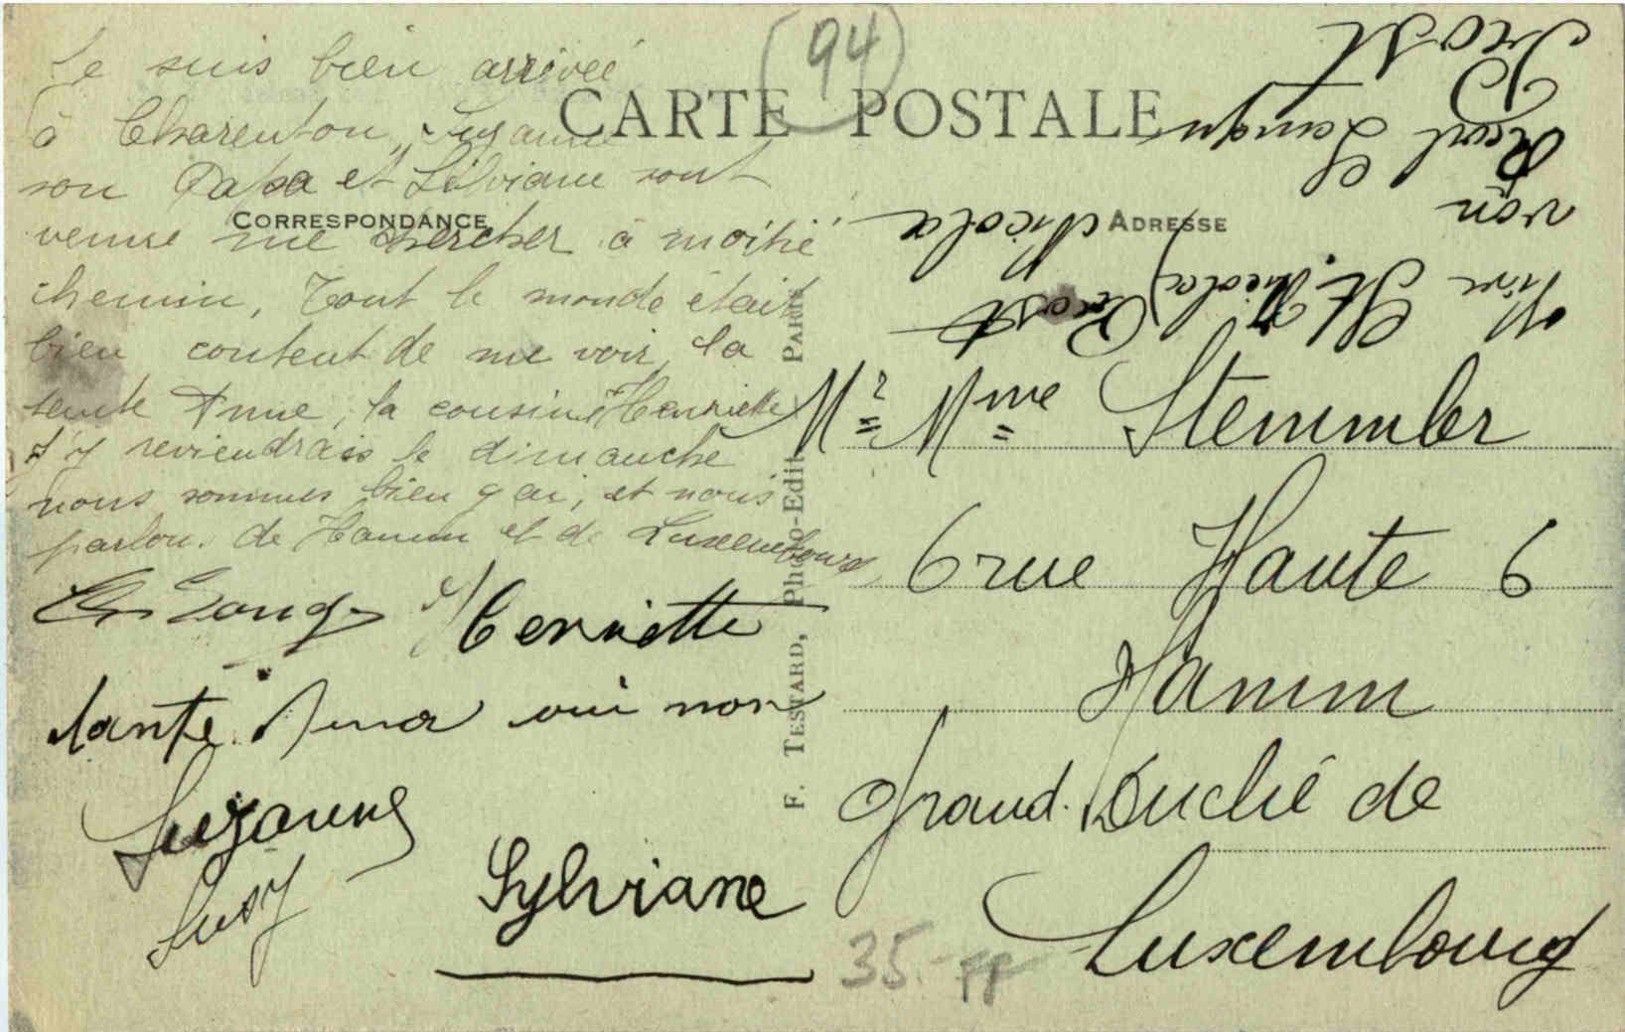 94
CARTE POSTALE
CORRESPONDANCE
ADRESSE
Je suis bien arrivée
à Charenton, Suzanne
son Papa et Silviane sont
venue me chercher à moitié
chemin, Tout le monde était
bien content de me voir, la
tente Anne, la cousine Henriette
j'y reviendrais le dimanche
nous sommes bien gai, et nous
parlon. de Hamm et de Luxembourg
Henriette
tante Anna oui non
Suzanne
Susy
Sylviane
F. TESTARD, Photo-Edit. PARIS
Mr Mme Stemmler
6 rue Haute 6
Hamm
Grand. Duché de
Luxembourg
35. FF
Prost
von
St. Nicola
Nicola
Prost